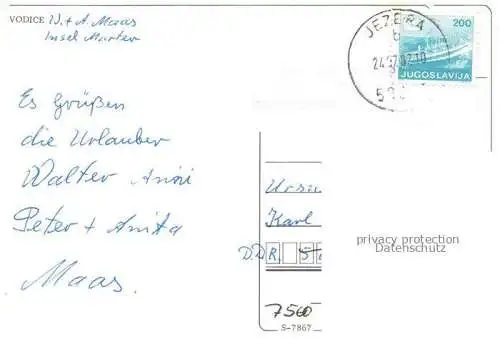 VODICE W. + A. Maas
Insel Murter
JEZERA
200
JUGOSLAVIJA
Es Grüßen
die Urlauber
Walter Anni
Peter + Anita
Maas.
Ursu
Karl
DDR.
privacy protection
Datenschutz
7560
S-7867